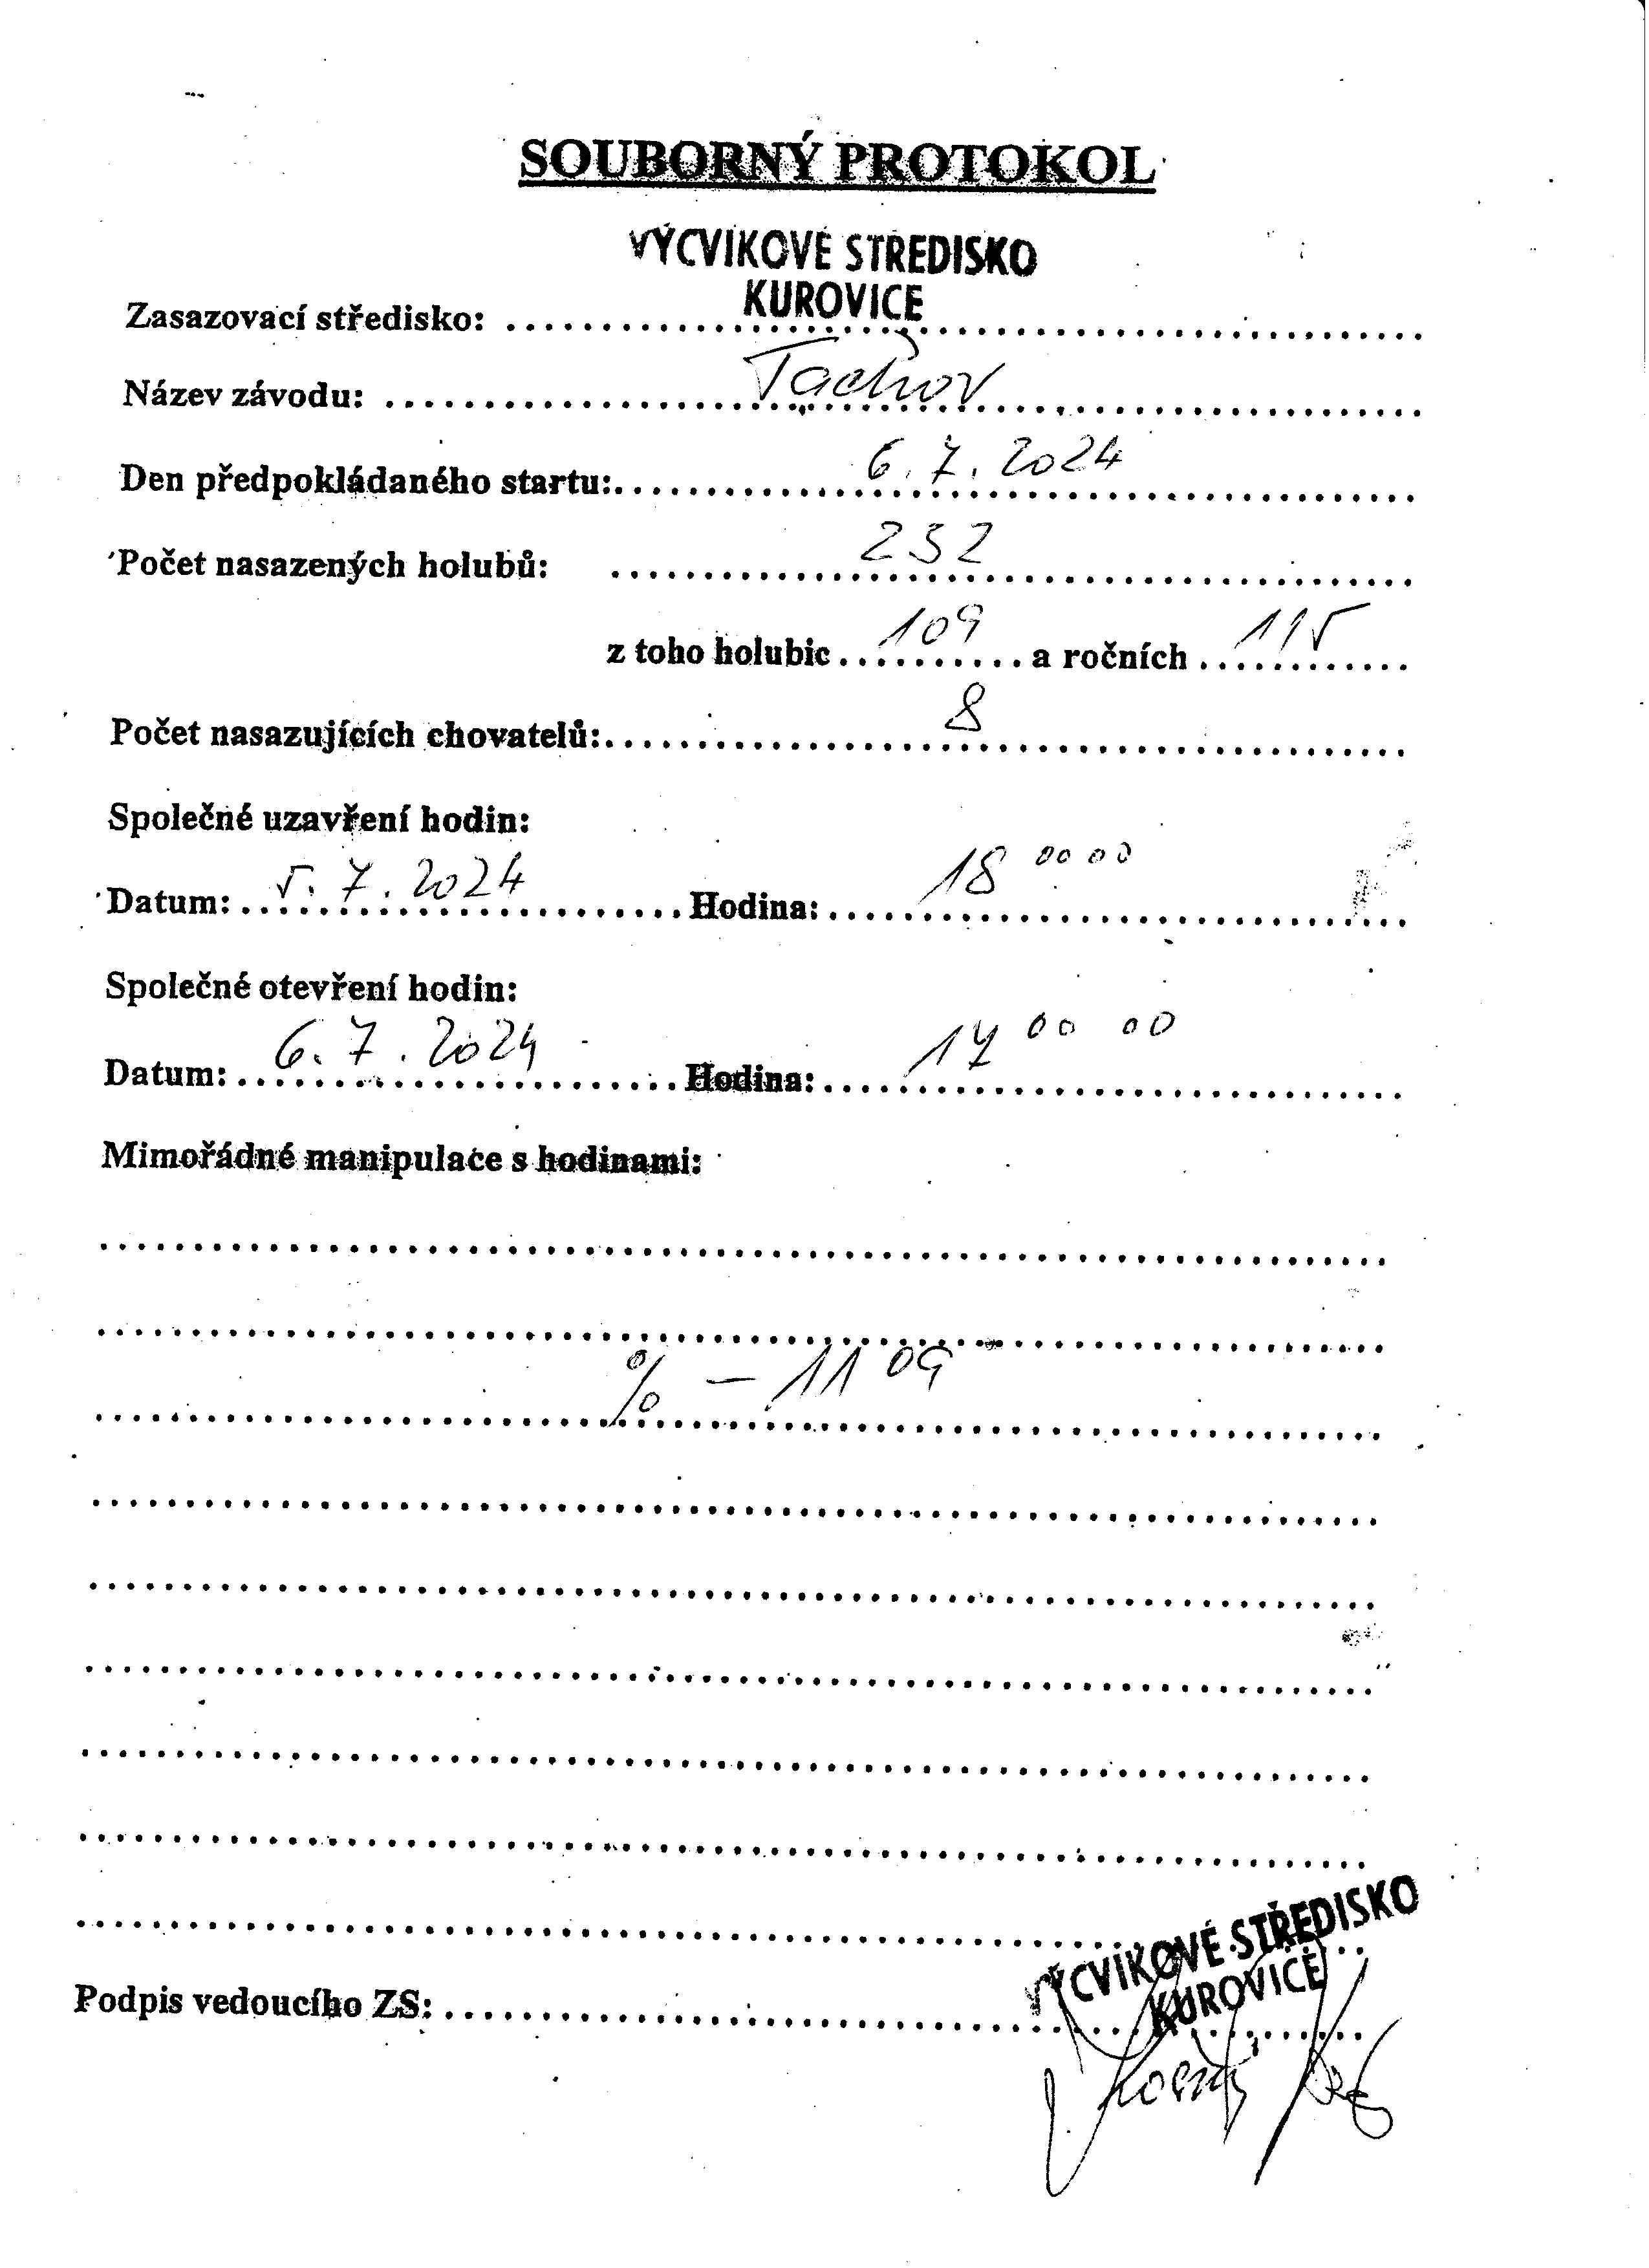 SOUBORNÝ PROTOKOL
VÝCVIKOVÉ STŘEDISKO
KUROVICE
Zasazovací středisko:
Název závodu: Tachov
Den předpokládaného startu: 6.7.2024
Počet nasazených holubů: 232
z toho holubic 109 a ročních 115
Počet nasazujících chovatelů: 8
Společné uzavření hodin:
Datum: 5.7.2024 Hodina: 18 00 00
Společné otevření hodin:
Datum: 6.7.2024 Hodina: 17 00 00
Mimořádné manipulace s hodinami:
% - 11 09
VÝCVIKOVÉ STŘEDISKO
KUROVICE
Podpis vedoucího ZS: